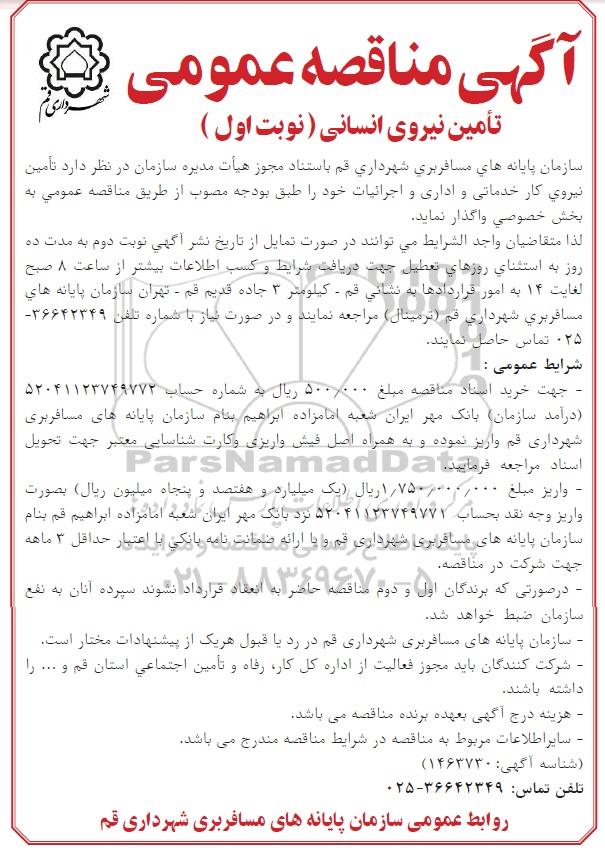 شهرداری قم
آگهی مناقصه عمومی
تأمین نیروی انسانی ( نوبت اول )
سازمان پایانه هاي مسافربري شهرداري قم باستناد مجوز هیأت مدیره سازمان در نظر دارد تأمین
نیروي کار خدماتی و اداری و اجرائیات خود را طبق بودجه مصوب از طریق مناقصه عمومي به
بخش خصوصي واگذار نماید.
لذا متقاضیان واجد الشرایط مي توانند در صورت تمایل از تاریخ نشر آگهي نوبت دوم به مدت ده
روز به استثناي روزهاي تعطیل جهت دریافت شرایط و کسب اطلاعات بیشتر از ساعت ۸ صبح
لغایت ۱۴ به امور قراردادها به نشانی قم ـ کیلومتر ۳ جاده قدیم قم ـ تهران سازمان پایانه هاي
مسافربري شهرداري قم (ترمینال) مراجعه نمایند و در صورت نیاز با شماره تلفن ۳۶۶۴۲۳۴۹-
۰۲۵ تماس حاصل نمایند.
شرایط عمومی :
- جهت خرید اسناد مناقصه مبلغ ۵۰۰/۰۰۰ ریال به شماره حساب ۵۲۰۴۱۱۲۳۷۴۹۷۷۲
(درآمد سازمان) بانک مهر ایران شعبه امامزاده ابراهیم بنام سازمان پایانه های مسافربری
شهرداری قم واریز نموده و به همراه اصل فیش واریزی وکارت شناسایی معتبر جهت تحویل
اسناد مراجعه فرمایید.
ParsNamadData
- واریز مبلغ ۱/۷۵۰/۰۰۰/۰۰۰ریال (یک میلیارد و هفتصد و پنجاه میلیون ریال) بصورت
واریز وجه نقد بحساب ۵۲۰۴۱۱۲۳۷۴۹۷۷۱ نزد بانک مهر ایران شعبه امامزاده ابراهیم قم بنام
سازمان پایانه های مسافربری شهرداری قم و یا ارائه ضمانت نامه بانکي با اعتبار حداقل ۳ ماهه
جهت شرکت در مناقصه.
۰۲۱-۸۸۳۴۹۶۷۰-۵
- درصورتی که برندگان اول و دوم مناقصه حاضر به انعقاد قرارداد نشوند سپرده آنان به نفع
سازمان ضبط خواهد شد.
- سازمان پایانه های مسافربری شهرداری قم در رد یا قبول هریک از پیشنهادات مختار است.
- شرکت کنندگان باید مجوز فعالیت از اداره کل کار، رفاه و تأمین اجتماعي استان قم و ... را
داشته باشند.
- هزینه درج آگهی بعهده برنده مناقصه می باشد.
- سایراطلاعات مربوط به مناقصه در شرایط مناقصه مندرج می باشد.
(شناسه آگهی: ۱۴۶۳۷۳۰)
تلفن تماس: ۳۶۶۴۲۳۴۹-۰۲۵
روابط عمومی سازمان پایانه های مسافربری شهرداری قم